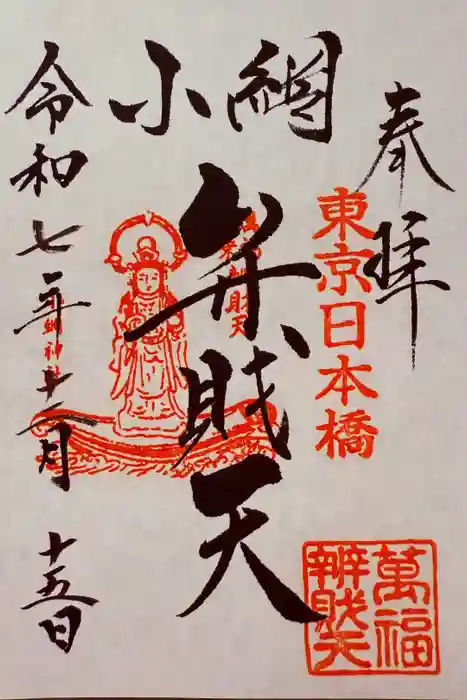 奉拝
東京日本橋
小網
弁財天
令和七年十一月十五日
萬福
辨財天
辨財天
小網神社